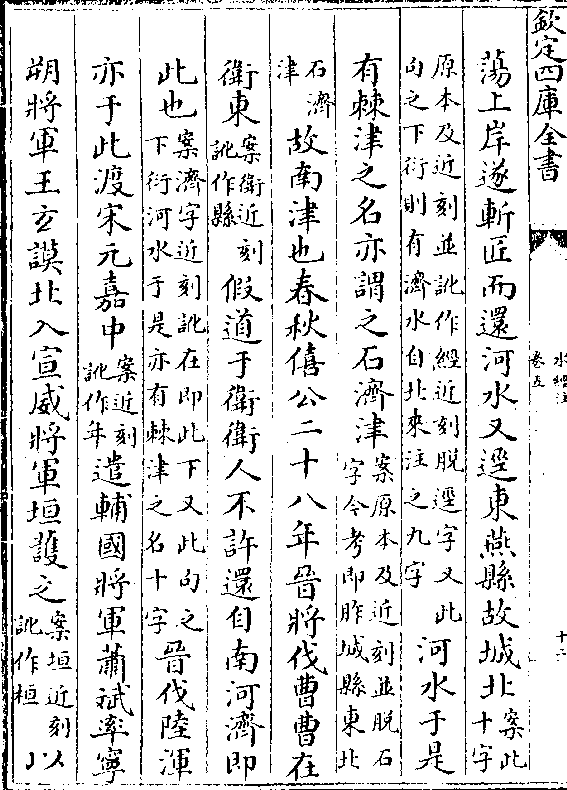 欽定四庫全書
水經注
卷五
十二
蕩上岸遂斬匠而還河水又逕東燕縣故城北案此十字
原本及近刻並訛作經近刻脫逕字又此句之下衍則有濟水自北來注之九字河水于是
有棘津之名亦謂之石濟津案原本及近刻並脫石字今考即胙城縣東北
石濟津故南津也春秋僖公二十八年晉將伐曹曹在
衛東案衛近刻訛作縣假道于衛衛人不許還自南河濟即
此也案濟字近刻訛在即此下又此句之下衍河水于是亦有棘津之名十字晉伐陸渾
亦于此渡宋元嘉中案近刻訛作年遣輔國將軍蕭斌率寧
朔將軍王玄謨北入宣威將軍垣護之案垣近刻訛作桓以